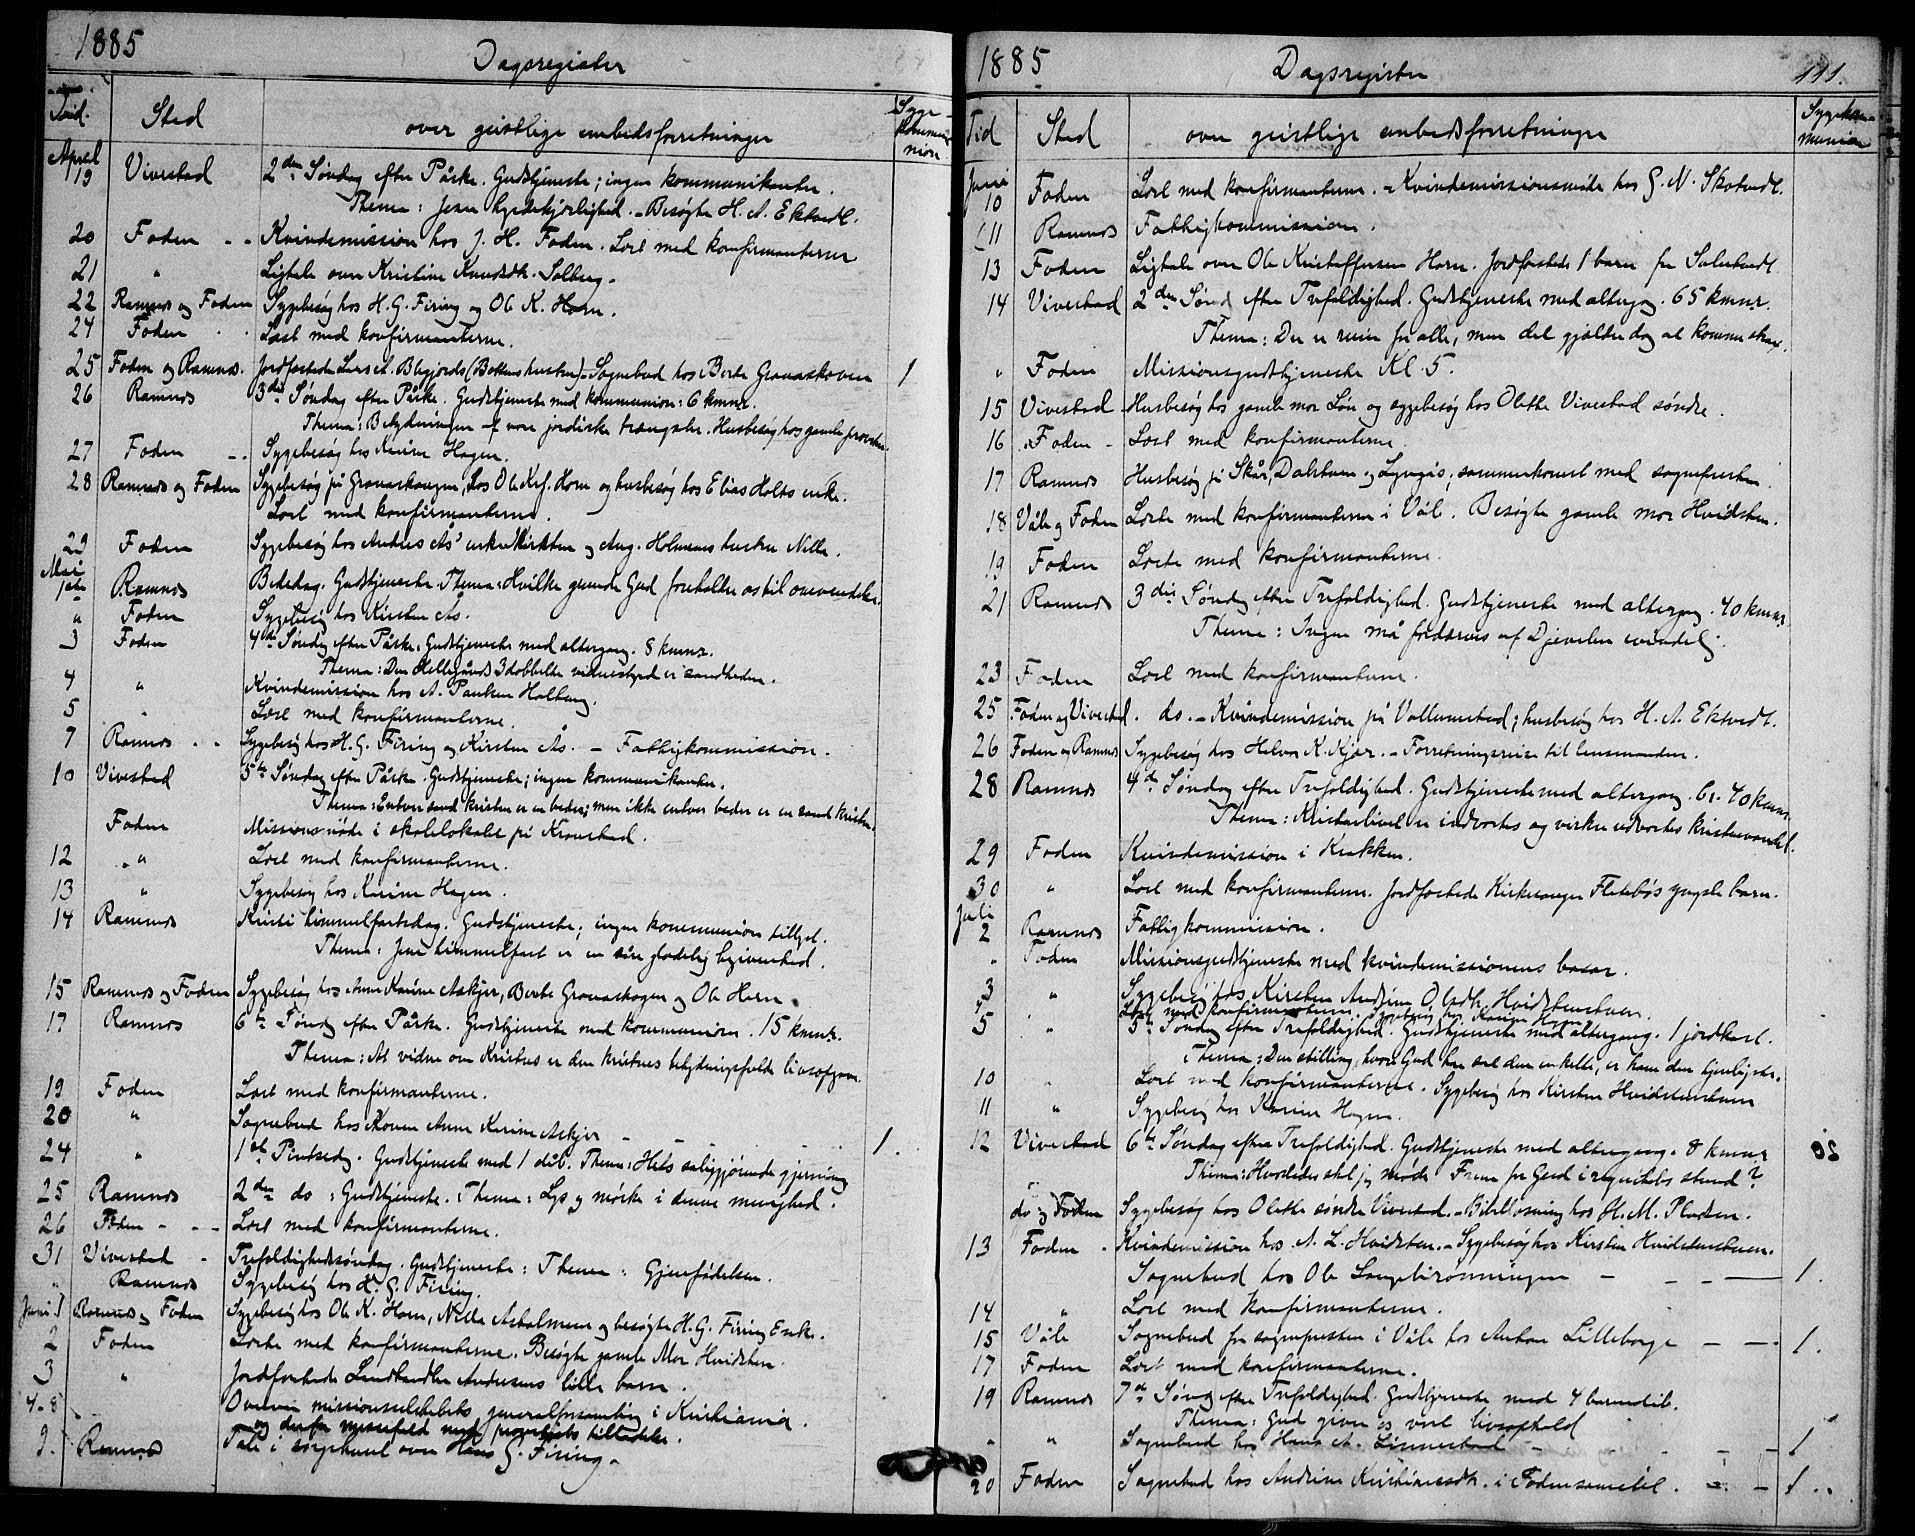 1885
Dagsregister
Tid.
Sted
over geistlige embedsforretninger
Sygekommunion
April
19 Vivestad 2den Søndag efter Påske. Gudstjeneste; ingen kommunikanter.
Thema: Jesu hyrdekjærlighed. – Besøgte H. A. Ektvedt.
20 Foden Kvindemission hos J. H. Foden. Læst med konfirmanterne
21 " Ligtale over Kristine Knudsdtr. Solberg.
22 Ramnes og Foden Sygebesøg hos H. G. Firing og Ole K. Horn.
24 Foden Læst med konfirmanterne.
25 Foden og Ramnes. Jordfæstede Lars A. (Bakkens hustru) – Sognebud hos Berte Gravaskoven 1
26 Ramnes 3die Søndag efter Påske. Gudstjeneste med kommunion: 6 kmnr.
Thema: Betydningen af vore jordiske trængsler. Husbesøg hos gamle
27 Foden Sygebesøg hos Karine Hagen.
28 Ramnes og Foden Sygebesøg på Gravaskougen, hos Ole Krf. Horn og husbesøg hos Elias Holts enke.
Læst med konfirmanterne.
29 Foden Sygebesøg hos Anders Ås' enke Kirsten og Aug. Holmens hustru Nille.
Mai
1ste Ramnes Bededag. Gudstjeneste. Thema: Hvilke grunde Gud foreholder os til omvendelse.
" Foden Sygebesøg hos Kirsten Ås.
3 Foden 4de Søndag efter Påske. Gudstjeneste med altergang. 8 kmnr.
Thema: Den Helligånds 3dobbelte vidnesbyrd er sandheden.
4 " Kvindemission hos A. Paulsen Holtung.
5 " Læst med konfirmanterne.
7 Ramnes Sygebesøg hos H. G. Firing og Kirsten Ås. – Fattigkommission.
10 Vivestad 5te Søndag efter Påske. Gudstjeneste; ingen kommunikanter.
Thema: Enhver sand kristen er en beder; men ikke enhver beder er en sand kristen.
Foden Missionsmøde i skolelokalet på Kronstad.
12 " Læst med konfirmanterne.
13 " Sygebesøg hos Karine Hagen.
14 Ramnes Kristi himmelfartsdag. Gudstjeneste; ingen kommunion tillyst.
Thema: Jesu himmelfart er en såre glædelig begivenhed.
15 Ramnes og Foden Sygebesøg hos Anne Karine Askjer, Berte Gravaskogen og Ole Horn.
17 Ramnes 6te Søndag efter Påske. Gudstjeneste med kommunion. 15 kmnr.
Thema: At vidne om Kristus er den kristnes betydningsfulde livsopgave.
19 Foden Læst med konfirmanterne.
20 " Sognebud hos Konen Anne Karine Askjer 1.
24 " 1ste Pintsedag. Gudstjeneste med 1 dåb. Thema: saliggjørende gjerning
25 Ramnes 2den do: Gudstjeneste. Thema: Lys og mørke i denne menighed.
26 Foden Læst med konfirmanterne.
31 Vivestad Trefoldighedssøndag. Gudstjeneste: Thema: Gjenfødelsen.
" Ramnes Sygebesøg hos H. G. Firing.
Juni 1 Ramnes og Foden Sygebesøg hos Ole K. Horn, Nille Asholmen og besøgte H. G. Firings Enke.
2 Foden Læste med konfirmanterne. Besøgte gamle Mor Hvidsten.
3 " Jordfæstede Landhandler Andersens lille barn.
4–8 Overvar missionsselskabets generalforsamling i Kristiania
og derfor messefald med provstens tilladelse.
9. Ramnes Tale i sørgehuset over Hans G. Firing.
1885
Dagsregister
111.
Tid
Sted
over geistlige embedsforretninger
Sygekommunion
Juni
10 Foden Læst med konfirmanterne. – Kvindemissionsmøde hos G. N. Skotvedt.
11 Ramnes Fattigkommission.
13 Foden Ligtale over Ole Kristoffersen Horn. Jordfæstede 1 barn fra
14 Vivestad 2den Sønd. efter Trefoldighed. Gudstjeneste med alterg. 65 kmnr.
Thema: Der er rum for alle, men det gjælder dog at komme strax.
" Foden Missionsgudstjeneste Kl. 5.
15 Vivestad Husbesøg hos gamle mor Løn og sygebesøg hos Olette Vivestad søndre.
16 Foden Læst med konfirmanterne.
17 Ramnes Husbesøg på Skår, Dalstuen og Lyngås; sammenkomst med sognepresten.
18 Våle og Foden Læste med konfirmanterne i Våle. Besøgte gamle mor Hvidsten.
19 Foden Læste med konfirmanterne.
21 Ramnes 3die Søndag efter Trefoldighed. Gudstjeneste med altergang. 40 kmnr.
Thema: Ingen må fordærves af Djevelen uvindelig.
23 Foden Læst med konfirmanterne.
25 Foden og Vivestad. do. – Kvindemission på Vollumstad; husbesøg hos H. A. Ektvedt.
26 Foden og Ramnes Sygebesøg hos Helvor K. Kjær. – Forretningsreise til lensmanden.
28 Ramnes 4de Søndag efter Trefoldighed. Gudstjeneste med altergang. 40 kmnr.
Thema: Kristenlivet er indvortes og virker udvortes kristenvandel.
29 Foden Kvindemission i Krakken.
30 " Læst med konfirmanterne. Jordfæstede Kirkesanger Flatebøs yngste barn.
Juli
2 Ramnes Fattigkommission.
" Foden Missionsgudstjeneste med kvindemissionens basar.
3 " Sygebesøg hos Kirsten Andrine Olsdtr. Hvidstenstuen.
4 Læst med konfirmanterne. Sygebesøg hos Karine Hagen
5 " 5te Søndag efter Trefoldighed. Gudstjeneste med altergang. 1 jordkast.
Thema: Den stilling, hvori Gud har sat den enkelte, er ham den tjenligste.
10 " Læst med konfirmanterne. Sygebesøg hos Kirsten Hvidstenstuen
11 " Sygebesøg hos Karine Hagen.
12 Vivestad 6te Søndag efter Trefoldighed. Gudstjeneste med altergang. 8 kmnr
Thema: Hvorledes skal jeg møde Frem for Gud i regnskabets stund?
do og Foden Sygebesøg hos Olette søndre Vivestad. – Bibellæsning hos H. M. Pladsen.
13 Foden Kvindemission hos A. L. Hvidsten. – Sygebesøg hos Kirsten Hvidstenstuen.
Sognebud hos Ole Langebrønningen 1.
14 " Læst med konfirmanterne.
15 Våle Sognebud for sognepresten i Våle hos Anton Lilleborge 1.
17 Foden Læst med konfirmanterne.
19 Ramnes 7de Sønd. efter Trefoldighed. Gudstjeneste med 4 barnedåb.
Thema: Gud giver os vort livsophold
" " Sognebud hos Hans A. Linnestad 1
20 Foden Sognebud hos Andrine Kristiansdtr. i 1